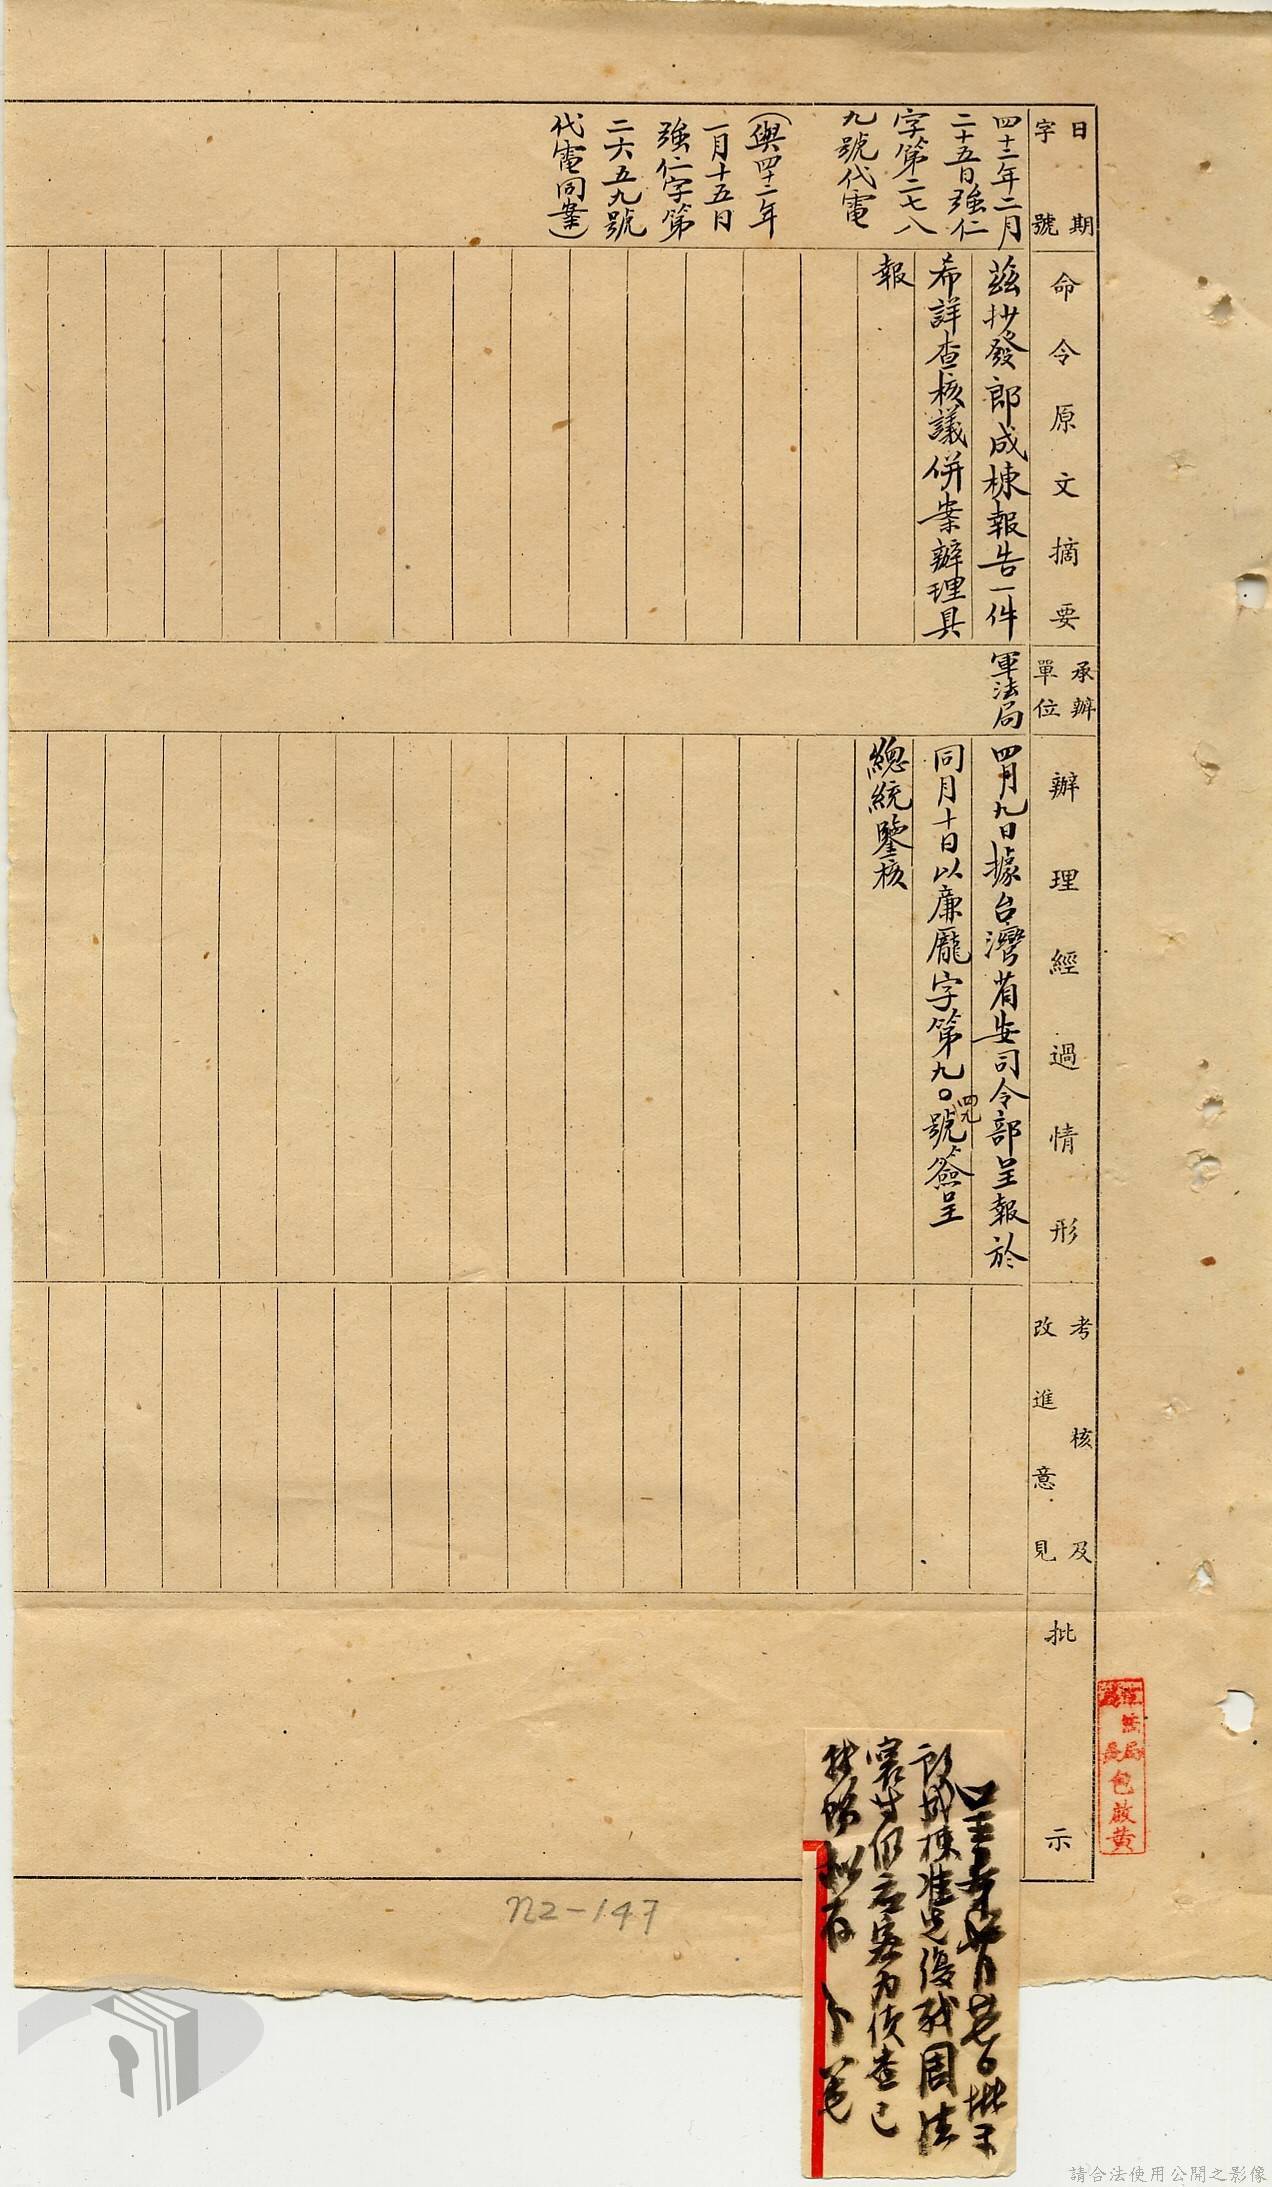 日期
字號
四十二年二月
二十五日強仁
字第二七八
九號代電
(與四十二年
一月十五日
強仁字第
二六五九號
代電同案)
命令原文摘要
茲抄發郎成棟報告一件
希詳查核議併案辦理具
報
承辦
單位
軍法局
辦理經過情形
四月九日據台灣省安司令部呈報於
同月十日以廉龐字第九〇四九號簽呈
總統鑒核
考核及
改進意見
批示
軍法局
包啟黃
郎成棟准先復我周法
仍應密為偵查已
拟存
N2-147
請合法使用公開之影像